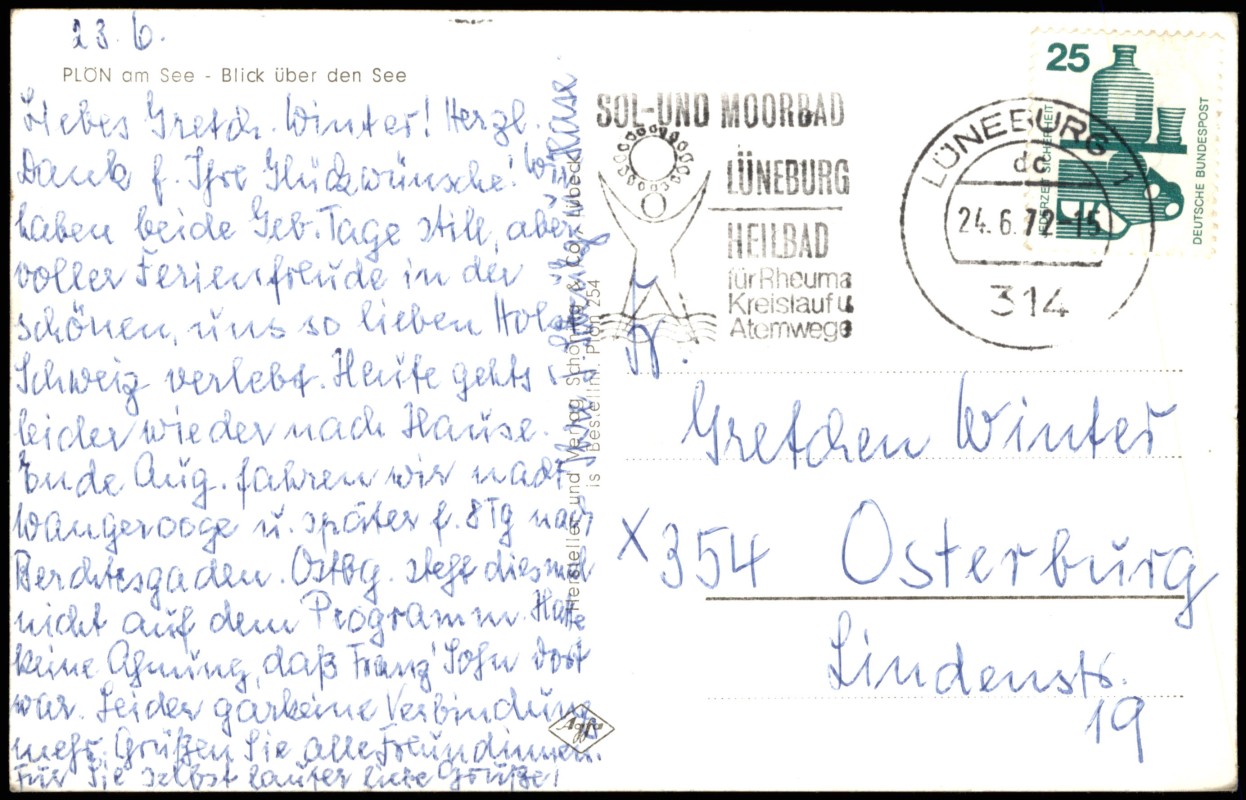 23.6.
PLÖN am See - Blick über den See
Liebes Gretch. Winter! Herzl.
Dank f. Ihre Glückwünsche! Wir
haben beide Geb. Tage still, aber
voller Ferienfreude in der
schönen, uns so lieben Holst.
Schweiz verlebt. Heute gehts
leider wieder nach Hause.
Ende Aug. fahren wir nach
Wangerooge u. später f. 8 Tg nach
Berchtesgaden. Ostbg. steht diesmal
nicht auf dem Programm. Hatte
keine Ahnung, daß Franz' Sohn dort
war. Leider garkeine Verbindung
mehr. Grüßen Sie alle Freundinnen.
Für Sie selbst lauter liebe Grüße!
Hase
Hersteller und Verlag Schöning & Co. Lübeck
is Bestellnr. Plön 254
Agfa
SOL-UND MOORBAD
LÜNEBURG
HEILBAD
für Rheuma
Kreislauf u.
Atemwege
LÜNEBURG 1
dc
24.6.72-15
314
25
JEDERZEIT SICHERHEIT
DEUTSCHE BUNDESPOST
Fr.
Gretchen Winter
X 354 Osterburg
Lindenstr.
19